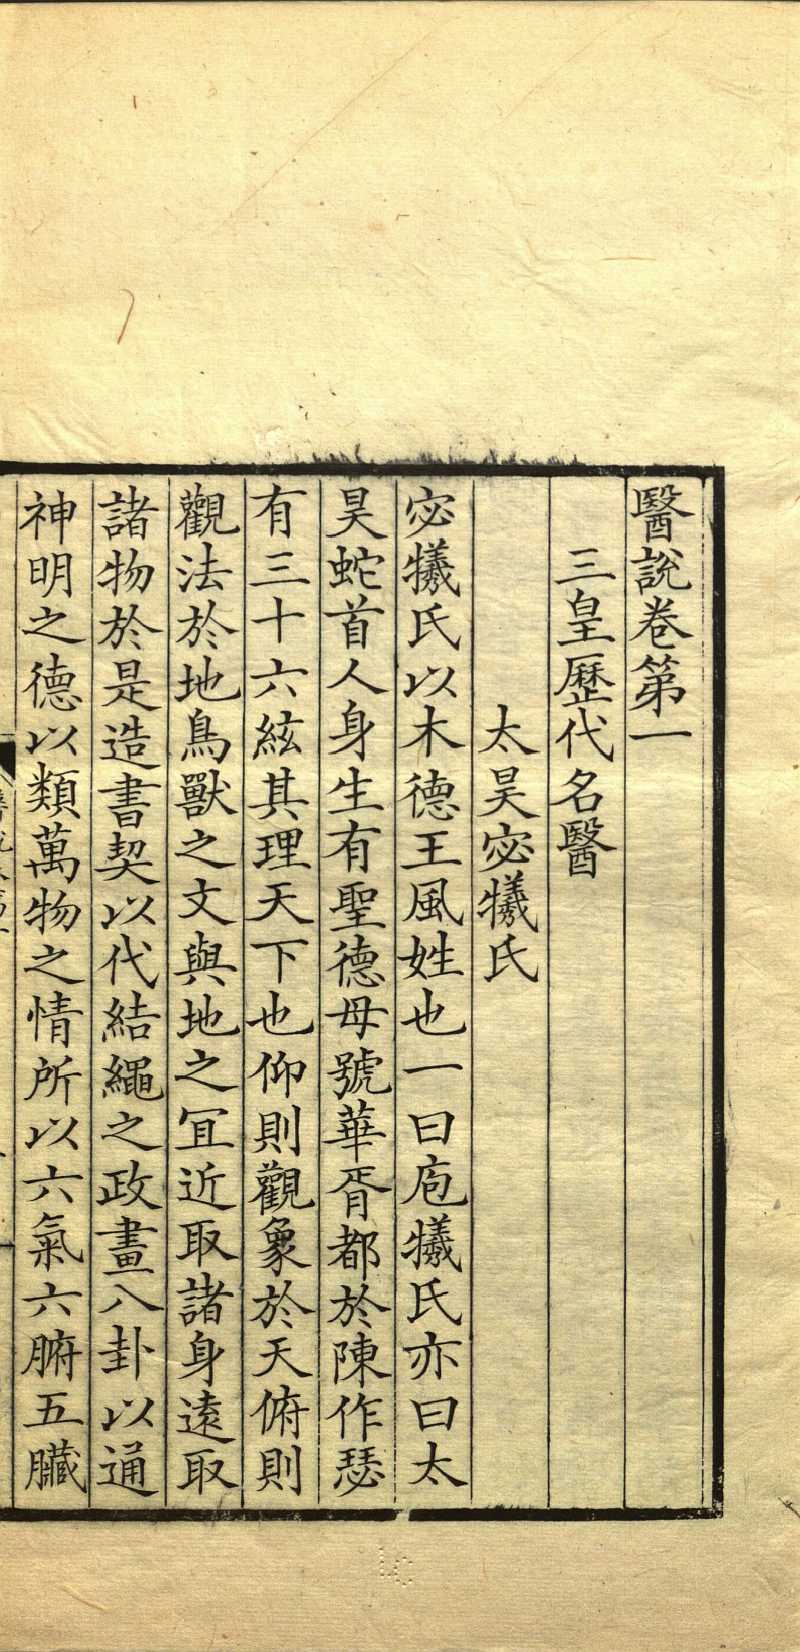 醫說卷第一
三皇歷代名醫
太昊宓犧氏
宓犧氏以木德王風姓也一曰庖犧氏亦曰太
昊蛇首人身生有聖德母號華胥都於陳作瑟
有三十六絃其理天下也仰則觀象於天俯則
觀法於地鳥獸之文與地之宜近取諸身遠取
諸物於是造書契以代結繩之政畫八卦以通
神明之德以類萬物之情所以六氣六腑五臟